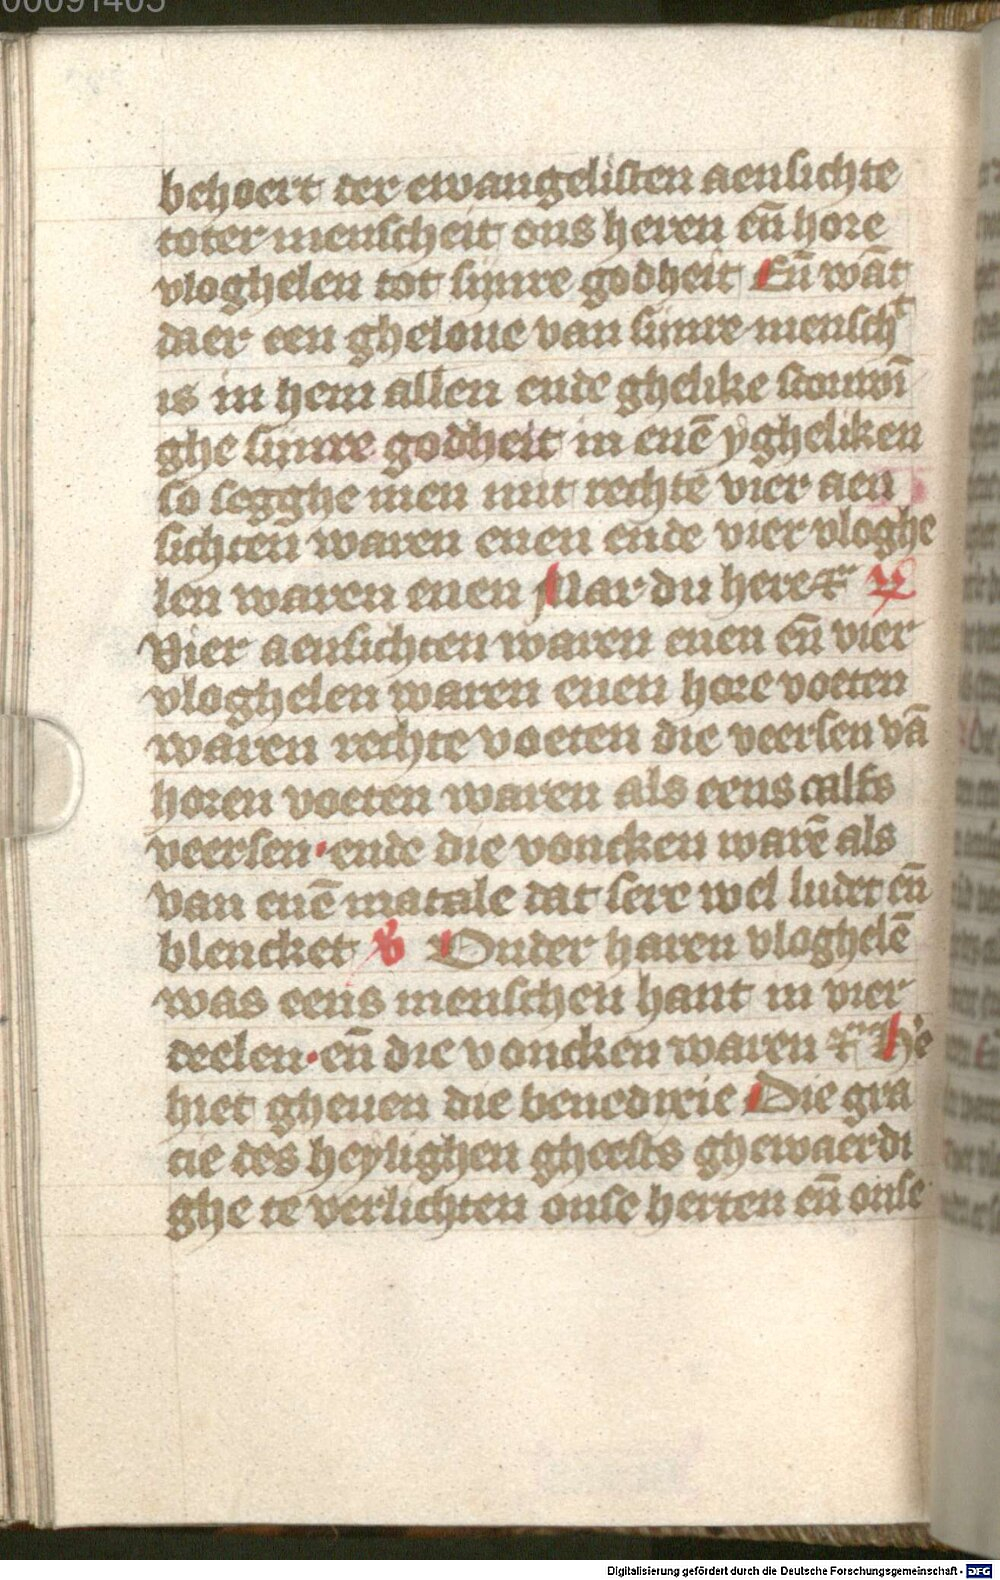 00091405
behoert der ewangelisten aensichte
toter menscheit ons heren en̄ hore
vloghelen tot sijnre godheit En̄ wāt
daer een gheloue van sijnre menschᵗ
is in hem allen ende ghelike scouwī
ghe sijnre godheit in enē ygheliken
so segghe men mit rechte vier aen
sichten waren enen ende vier vloghe
len waren enen Mar du here
Vier aensichten waren enen en̄ vier
vloghelen waren enen hore voeten
waren rechte voeten die veersen vā
horen voeten waren als eens calfs
veersen · ende die voncken warē als
van enē matale dat sere wel ludet en̄
blencket Onder haren vloghelē
was eens menschen hant in vier
deelen · en̄ die voncken waren
hiet gheuen die benedixie Die gra
cie des heylighen gheests ghewaerdi
ghe te verlichten onse herten en̄ onse
Digitalisierung gefördert durch die Deutsche Forschungsgemeinschaft - DFG